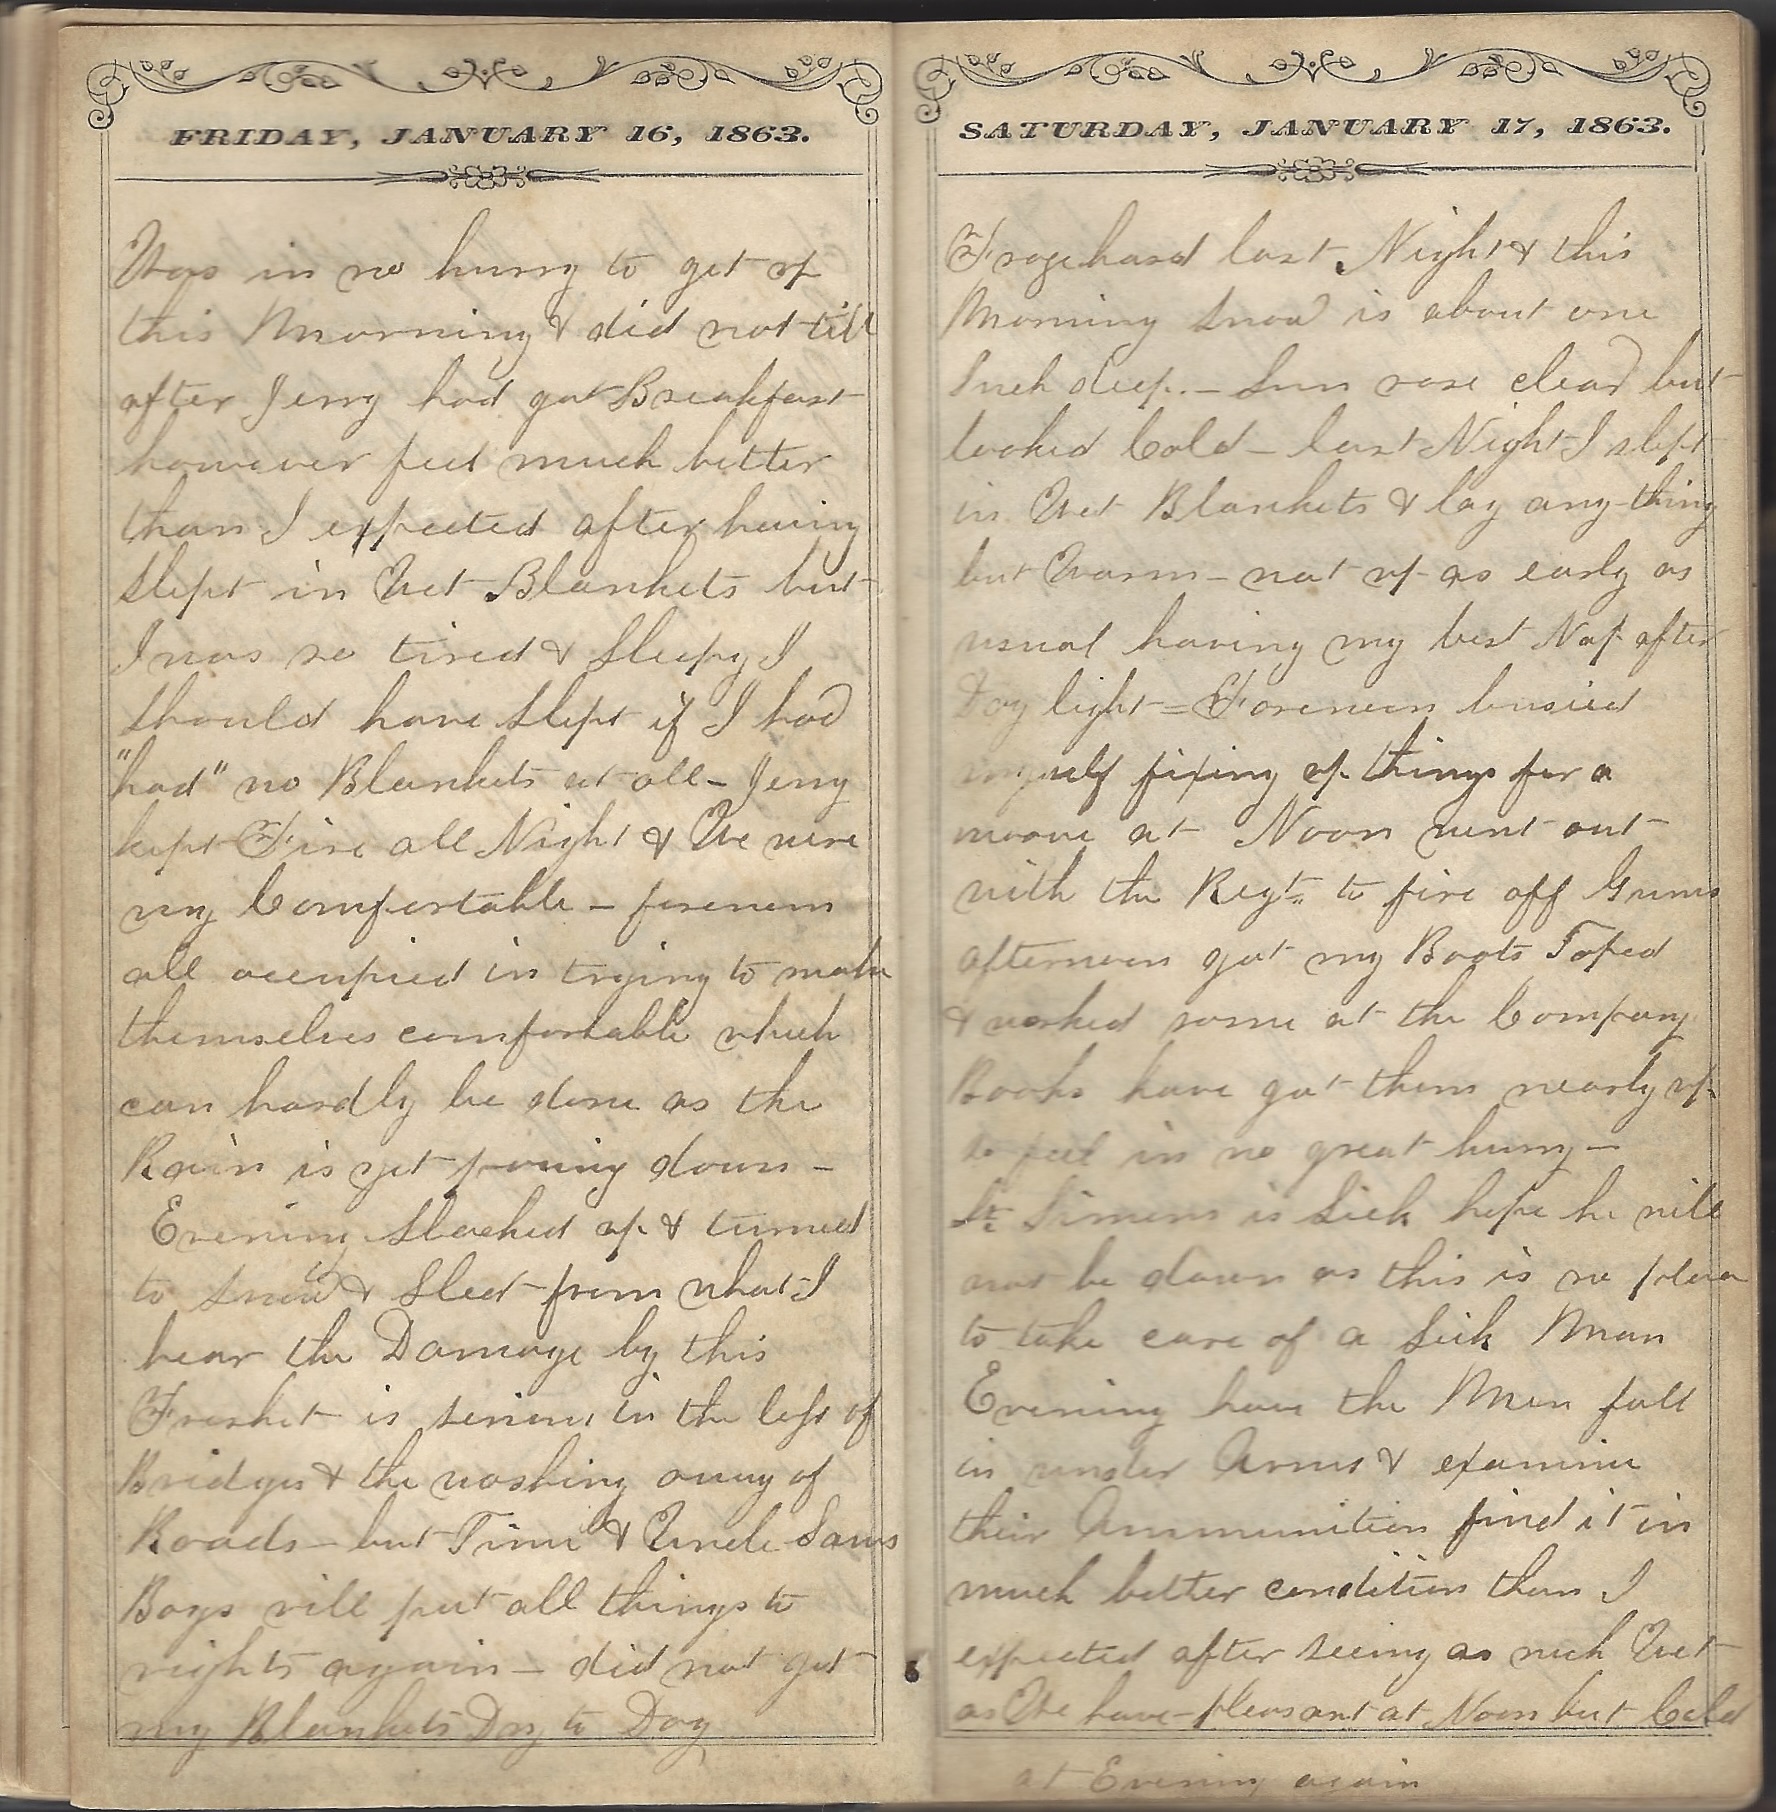 FRIDAY, JANUARY 16, 1863.
Was in no hurry to get up
this Morning & did not till
after Jerry had got Breakfast
however feel much better
than I expected after having
Slept in Wet Blankets but
I was so tired & Sleepy I
Should have Slept if I had
"had" no Blankets at all – Jerry
kept Fire all Night & We were
very Comfortable – forenoon
all occupied in trying to make
themselves comfortable which
can hardly be done as the
Rain is yet pouring down –
Evening Slacked up & turned
to Snow & Sleet – from what I
hear the Damage by this
Freshet is serious in the loss of
Bridges & the washing away of
Roads – but Time & Uncle Sams
Boys will put all things to
rights again – did not get
my Blankets Dry to Day
SATURDAY, JANUARY 17, 1863.
Froze hard last Night & this
Morning Snow is about one
Inch deep. – Sun rose clear but
looked Cold – last Night I slept
in Wet Blankets & lay any thing
but Warm – not up as early as
usual having my best Nap after
Day light = Forenoon busied
myself fixing up things for a
moove at Noon went out
with the Regt. to fire off Guns
afternoon got my Boots Toped
& worked some at the Company
Books have got them nearly up
so feel in no great hurry –
Lt Simens is Sick hope he will
not be down as this is no place
to take care of a Sick Man
Evening have the Men fall
in under Arms & examine
their Ammunition find it in
much better condition than I
expected after seeing as much Wet
as We have – pleasant at Noon but Cold
at Evening again